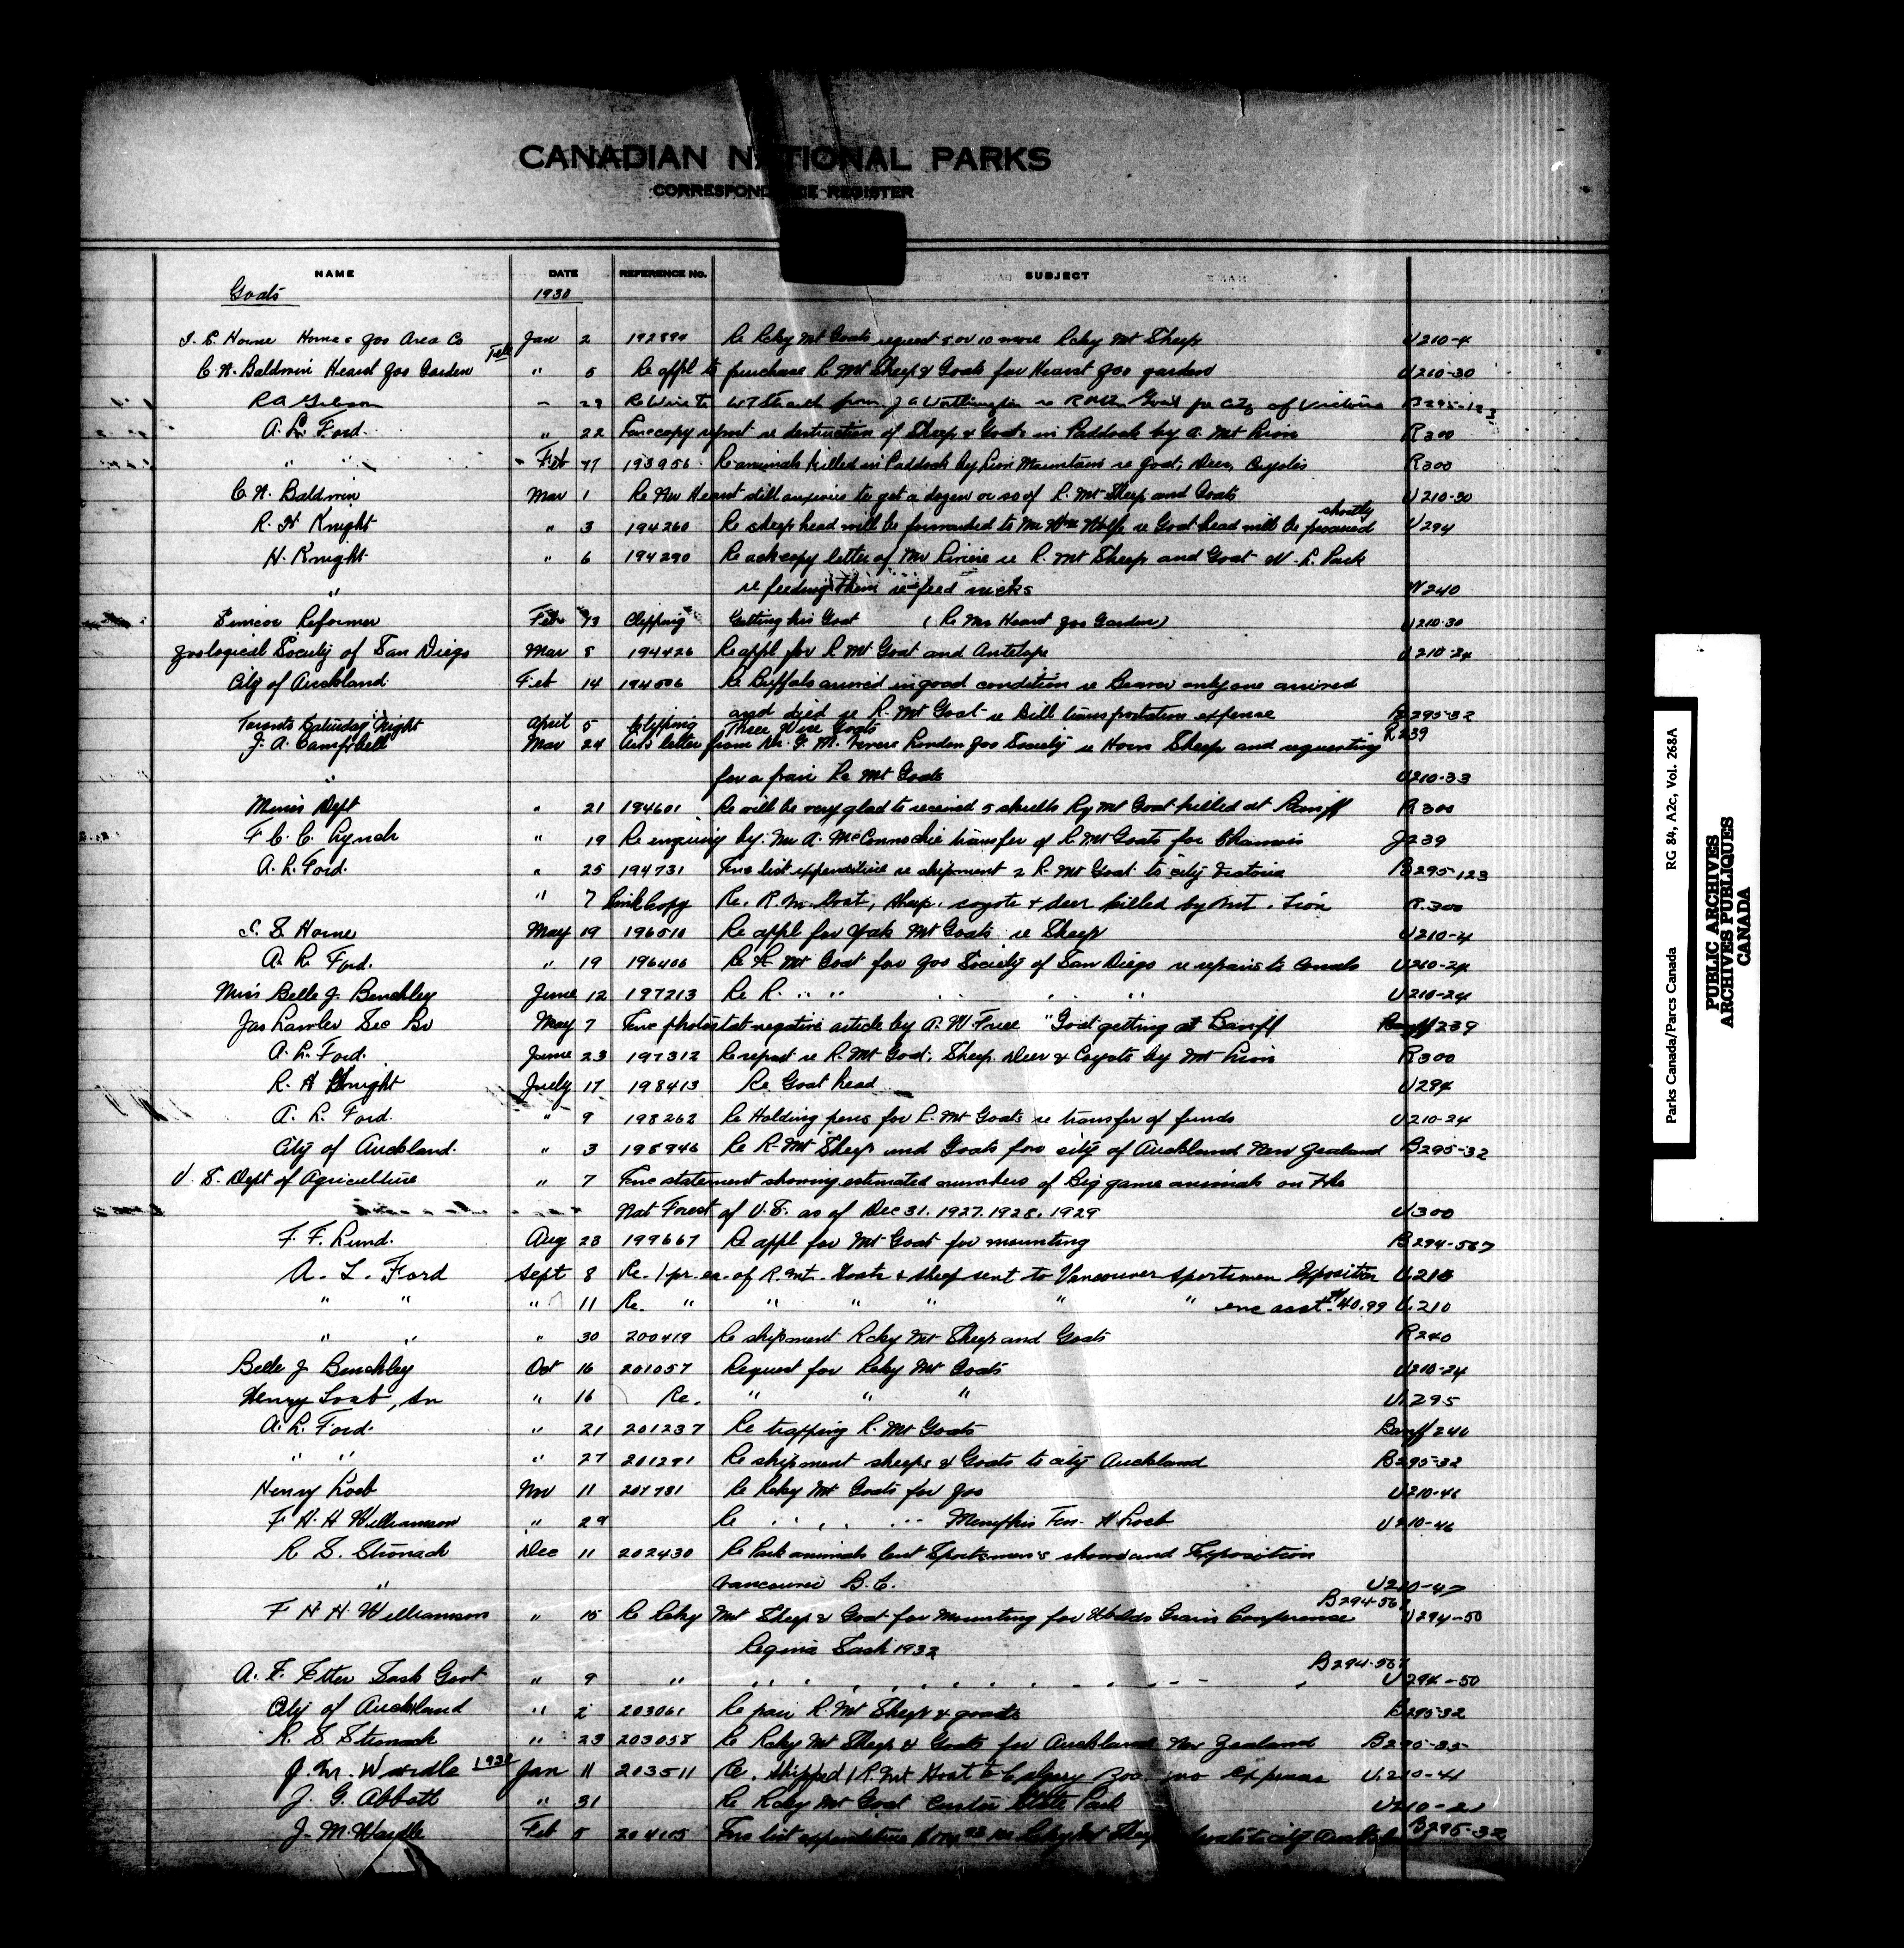 CANADIAN NATIONAL PARKS
CORRESPONDENCE REGISTER
NAME DATE REFERENCE No. SUBJECT
Goats 1930
Jan 2 Re Rcky Mt Goats request 5 or 10 more Rcky Mt Sheep U210-4
C. N. Baldwin Hearst Zoo Garden " 5 Re appl to purchase R Mt Sheep & Goats for Hearst Zoo garden U210-30
R A Gibson 29 Re Wire to from J A Worthington re R Mtn Goat for City of Victoria B295-123
A. L. Ford. " 22 Enc copy report re destruction of Sheep & Goats in Paddock by a Mt Lion R300
" " Feb 193956 Re animals killed in Paddock by Lion Mountain re Goat, Deer, Coyotes R300
C. N. Baldwin Mar 1 Re Mr Hearst still anxious to get a dozen or so of R. Mt Sheep and Goats U210-30
R. H Knight " 3 194260 Re sheep head will be forwarded to Mr Wm Wolfe re Goat head will be procured shortly U294
H. Knight " 6 194290 Re ack copy letter of Mr Riviere re R. Mt Sheep and Goat W. L. Park
" re feeding them re feed racks W240
Simcoe Reformer Feb 13 Clipping Getting his Goat (Re Mr Hearst Zoo Garden) U210-30
Zoological Society of San Diego Mar 5 194426 Re appl for R Mt Goat and Antelope U210-24
City of Auckland Feb 14 194506 Re Buffalo arrived in good condition re Beaver only one arrived
and died re R. Mt Goat re Bill transportation expense B295-32
Toronto Saturday Night April 5 Clipping Three Wise Goats R239
J. A. Campbell Mar 24 letter from Dr. G. M. Vevers London Zoo Society re Horn Sheep and requesting
" for a pair Re Mt Goats U210-33
Mines Dept " 21 194601 Re will be very glad to received 5 skulls Ry Mt Goat killed at Banff R300
F C. C. Lynch " 19 Re enquiry by Mr A. McConnochie transfer of R Mt Goats for Chamois J239
A. L. Ford. " 25 194731 Enc list expenditure re shipment 2 R. Mt Goat to city Victoria B295-123
" 7 Pink Copy Re. R. M. Goat, sheep, coyote & deer killed by mt. lion R.300
S. S Horne May 19 196516 Re appl for Yak Mt Goats re Sheep U210-4
A. L. Ford. " 19 196406 Re R. Mt Goat for Zoo Society of San Diego re repairs to Corrals U210-24
Miss Belle J. Benchley June 12 197213 Re R. " " " " " U210-24
Jas Lawler Sec Br May 7 Enc photostat negative article by A. W Free "Goat getting at Banff Banff 239
A. L. Ford. June 23 197312 Re report re R. Mt Goat, Sheep Deer & Coyote by Mt Lion R300
R. H Knight July 17 198413 Re Goat head U294
A. L. Ford. " 9 198262 Re Holding pens for R. Mt Goats re transfer of funds U210-24
City of Auckland. " 3 198946 Re R. Mt Sheep and Goats for city of Auckland New Zealand B295-32
U. S. Dept of Agriculture " 7 Enc statement showing estimated numbers of Big game animals on the
Nat Forest of U.S. as of Dec 31. 1927. 1928. 1929 U300
F. F. Lund. Aug 28 199667 Re appl for Mt Goat for mounting B294-567
A. L. Ford Sept 8 Re. 1 pr. ea. of R. Mt. Goats & sheep sent to Vancouver Sportsmen Exposition U.210
" " " 11 Re. " " " " " " enc acct #40.99 U.210
" " " 30 200419 Re shipment Rcky Mt Sheep and Goats R240
Belle J Benchley Oct 16 201057 Request for Rcky Mt Goats U210-24
Henry Loeb, Sr " 16 Re. " " " U.295
A. L. Ford. " 21 201237 Re trapping R. Mt Goats Banff 240
" " " 27 201291 Re shipment sheeps & Goats to city Auckland B295-32
Henry Loeb Nov 11 201781 Re Rcky Mt Goats for Zoo U210-46
F H. H Williamson " 29 Re " " " " Memphis Ten. H Loeb U210-46
R S. Stronach Dec 11 202430 Re Park animals lent Sportsmen's show and Exposition
" Vancouver B.C. U210-47
F H. H. Williamson " 15 Re Rcky Mt Sheep & Goat for mounting for Worlds Grain Conference B294-567 U294-50
Regina Sask 1932
A. F. Etter Sask Govt " 9 " B294-567 U294-50
City of Auckland " 2 203061 Re pair R. Mt Sheep & goats B295-32
R. S Stronach " 23 203058 Re Rcky Mt Sheep & Goats for Auckland New Zealand
J. M. Wardle Jan 11 203511 Re. Shipped 1 R. Mt Goat to Calgary Zoo no expense U.210-41
J. G. Abbott " 31 Re Rcky Mt Goat Custer State Park
J. M. Wardle Feb 5 Enc list expenditure re Rcky Mt Sheep Goats to city Auckland B295-32
Parks Canada/Parcs Canada RG 84, A2c, Vol. 268A
PUBLIC ARCHIVES
ARCHIVES PUBLIQUES
CANADA